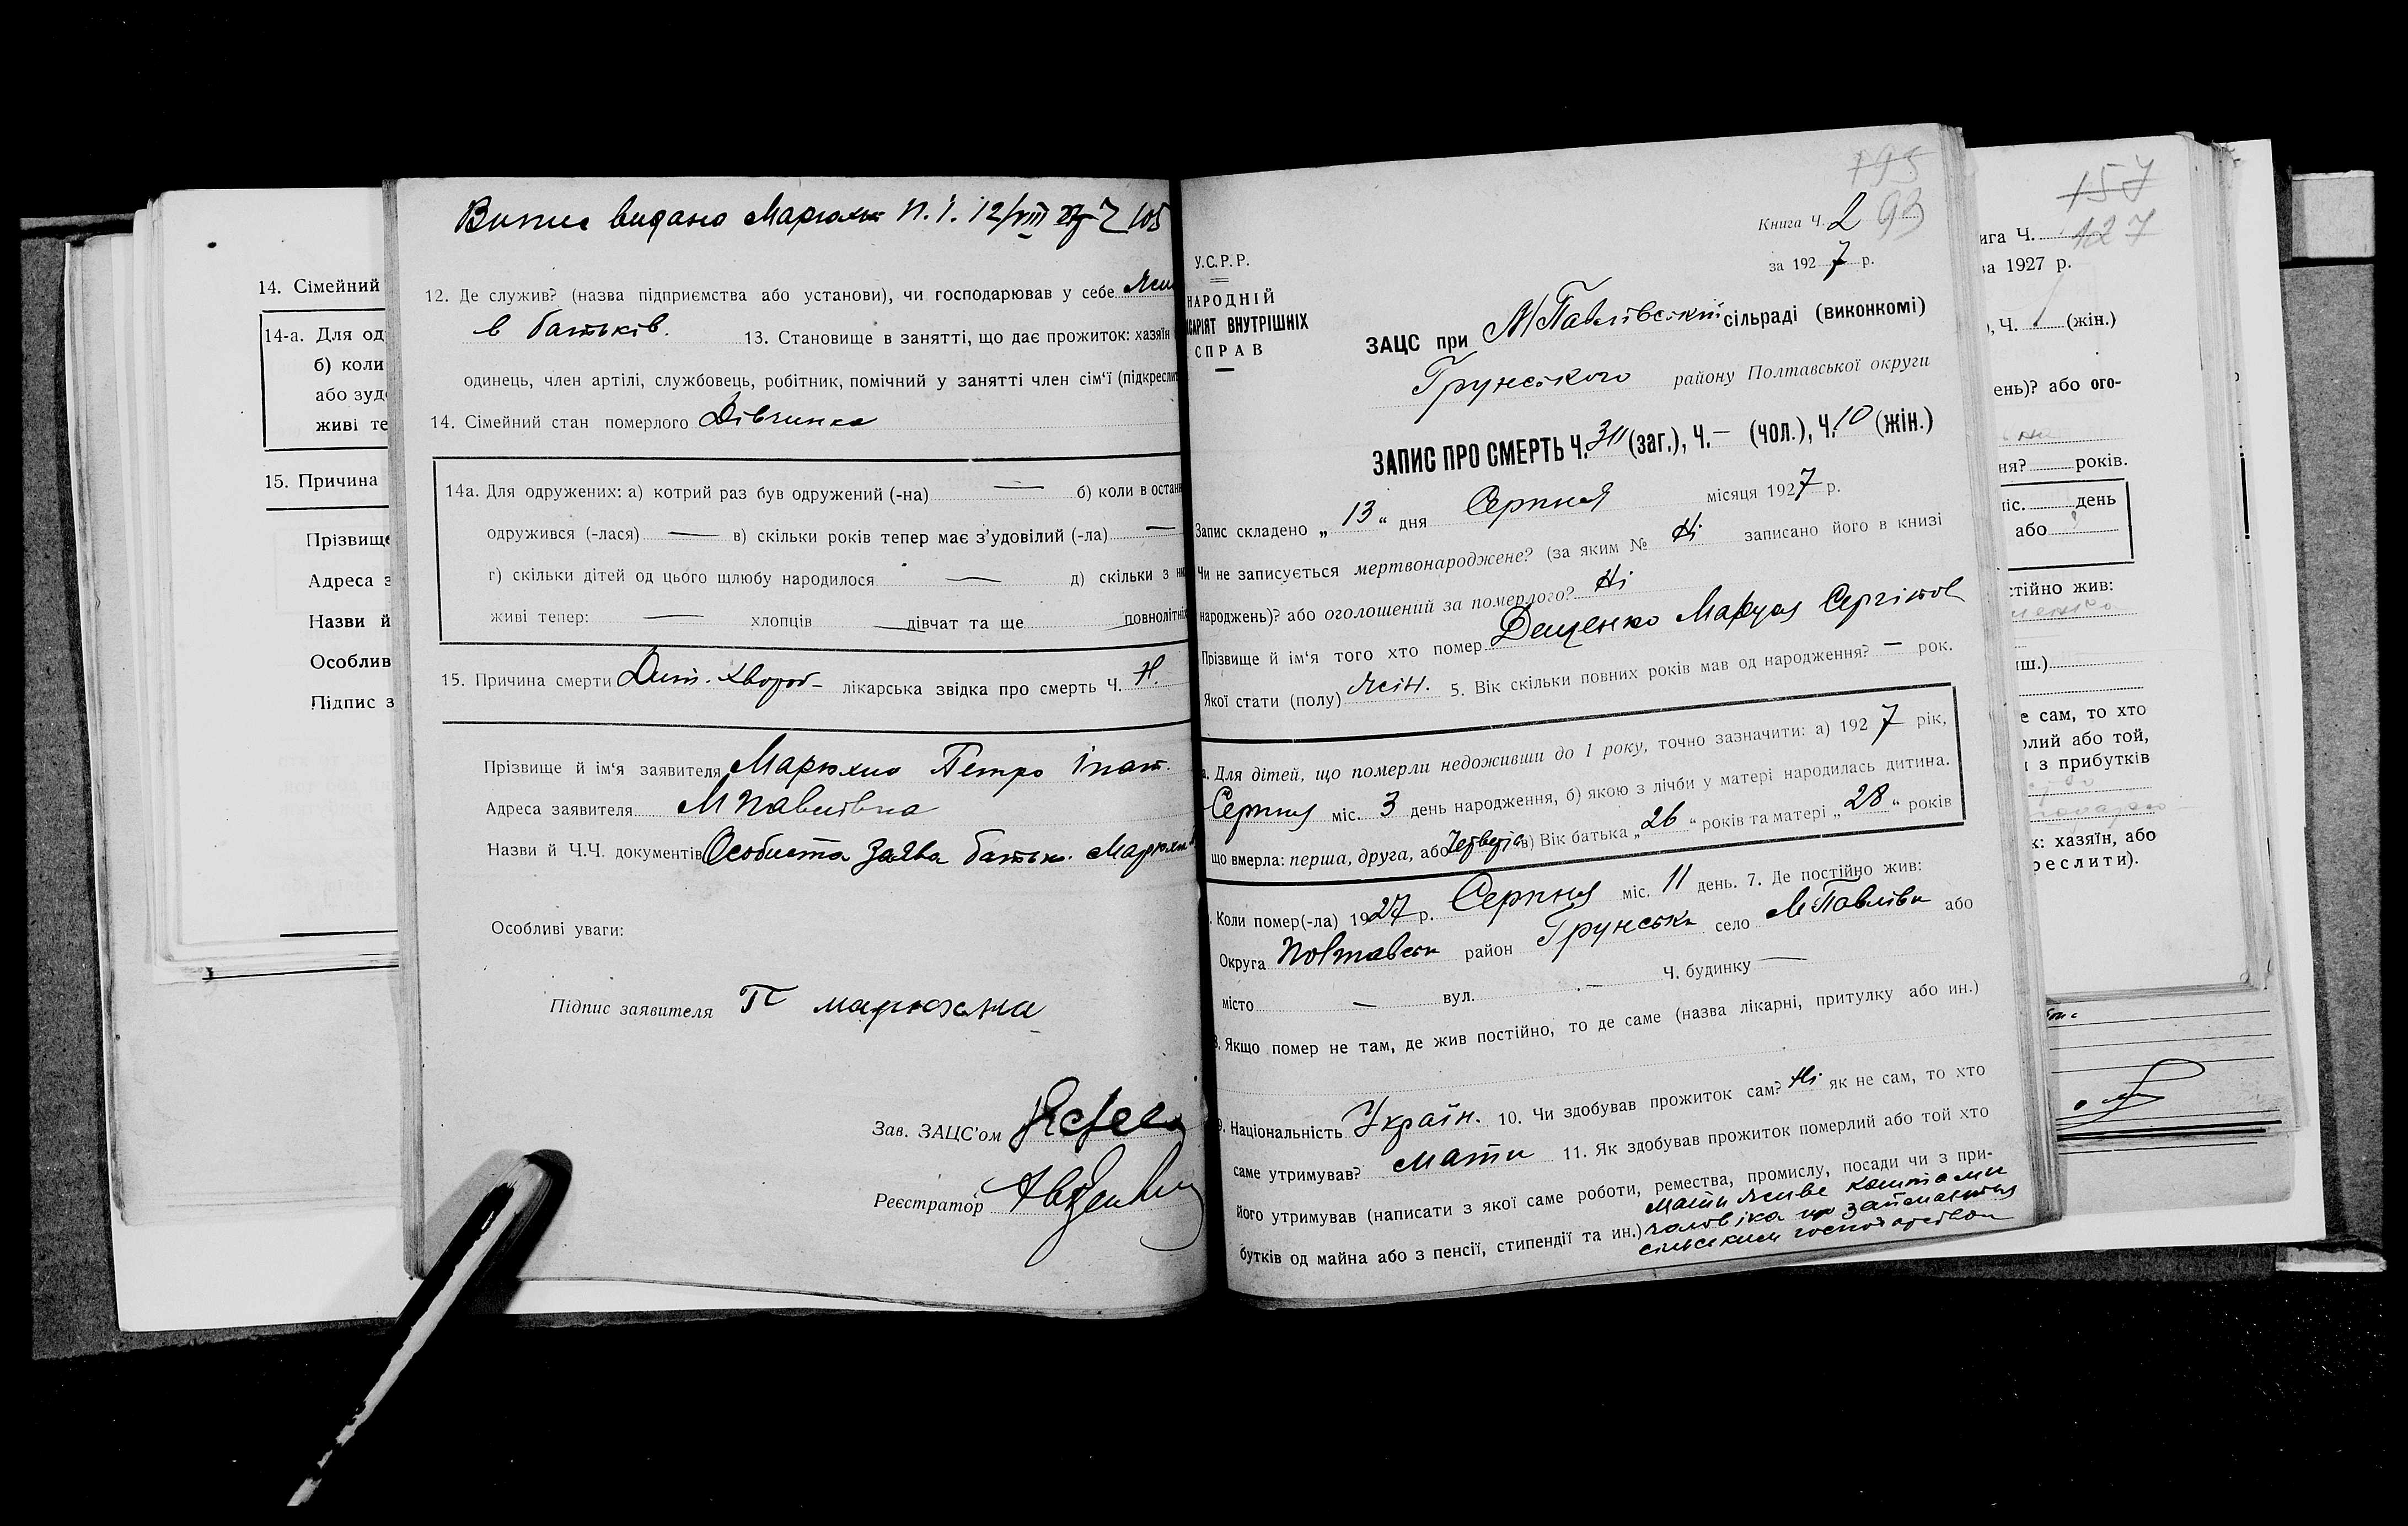 14. Сімейний
14-а. Для од
б) коли
або зуд
живі те
15. Причина
Прізвище
Адреса з
Назви й
Особлив
Підпис з
Випис видано П. І. 12/VIII 27 105
12. Де служив? (назва підприємства або установи), чи господарював у себе
в батьків. 13. Становище в занятті, що дає прожиток: хазяїн
одинець, член артілі, службовець, робітник, помічний у занятті член сім‘ї (підкреслит
14. Сімейний стан померлого Дівчинка
14а. Для одружених: а) котрий раз був одружений (-на) — б) коли в останн
одружився (-лася) — в) скільки років тепер має з’удовілий (-ла) —
г) скільки дітей од цього шлюбу народилося — д) скільки з ни
живі тепер: — хлопців — дівчат та ще — повнолітніх
15. Причина смерти Дит. хвороб– лікарська звідка про смерть Ч. Н.
Прізвище й ім‘я заявителя Марюхно Петро Ігнат.
Адреса заявителя М Павлівка
Назви й Ч.Ч. документів Особиста заява батьк.
Особливі уваги:
Підпис заявителя П
Зав. ЗАЦС’ом
Реєстратор
195
Книга Ч. 2 93
за 1927 р.
У.С.Р.Р.
НАРОДНІЙ
САРІЯТ ВНУТРІШНІХ
СПРАВ
ЗАЦС при М Павлівській сільраді (виконкомі)
Грунського району Полтавської округи
ЗАПИС ПРО СМЕРТЬ Ч. (заг.), Ч. — (чол.), Ч. 10 (жін.)
Запис складено „ 13 “ дня Серпня місяця 1927 р.
Чи не записується мертвонароджене? (за яким № Ні записано його в книзі
народжень)? або оголошений за померлого? Ні
Прізвище й ім‘я того хто помер Дещенко Маруся Сергіївов
Якої стати (полу) жін. 5. Вік скільки повних років мав од народження? — рок.
а. Для дітей, що померли недоживши до 1 року, точно зазначити: а) 1927 рік,
Серпня міс. 3 день народження, б) якою з лічби у матері народилась дитина.
що вмерла: перша, друга, або Четверта в) Вік батька „ 26 “ років та матері „ 28 “ років
. Коли помер(-ла) 1927 р. Серпня міс. 11 день. 7. Де постійно жив:
Округа Полтавськ район Грунськ село М Павлівк або
місто — вул. — Ч. будинку —
8. Якщо помер не там, де жив постійно, то де саме (назва лікарні, притулку або ин.)
9. Національність Україн. 10. Чи здобував прожиток сам? Ні як не сам, то хто
саме утримував? Мати 11. Як здобував прожиток померлий або той хто
його утримував (написати з якої саме роботи, ремества, промислу, посади чи з при-
бутків од майна або з пенсії, стипендії та ин.) Мати живе коштами
чоловіка що займається
сільським господарством
157
127
ига Ч.
за 1927 р.
), Ч. (жін.)
ень)? або ого-
ня? років.
міс. день
або
стійно жив:
иш.)
е сам, то хто
рлий або той,
и з прибутків
к: хазяїн, або
реслити).